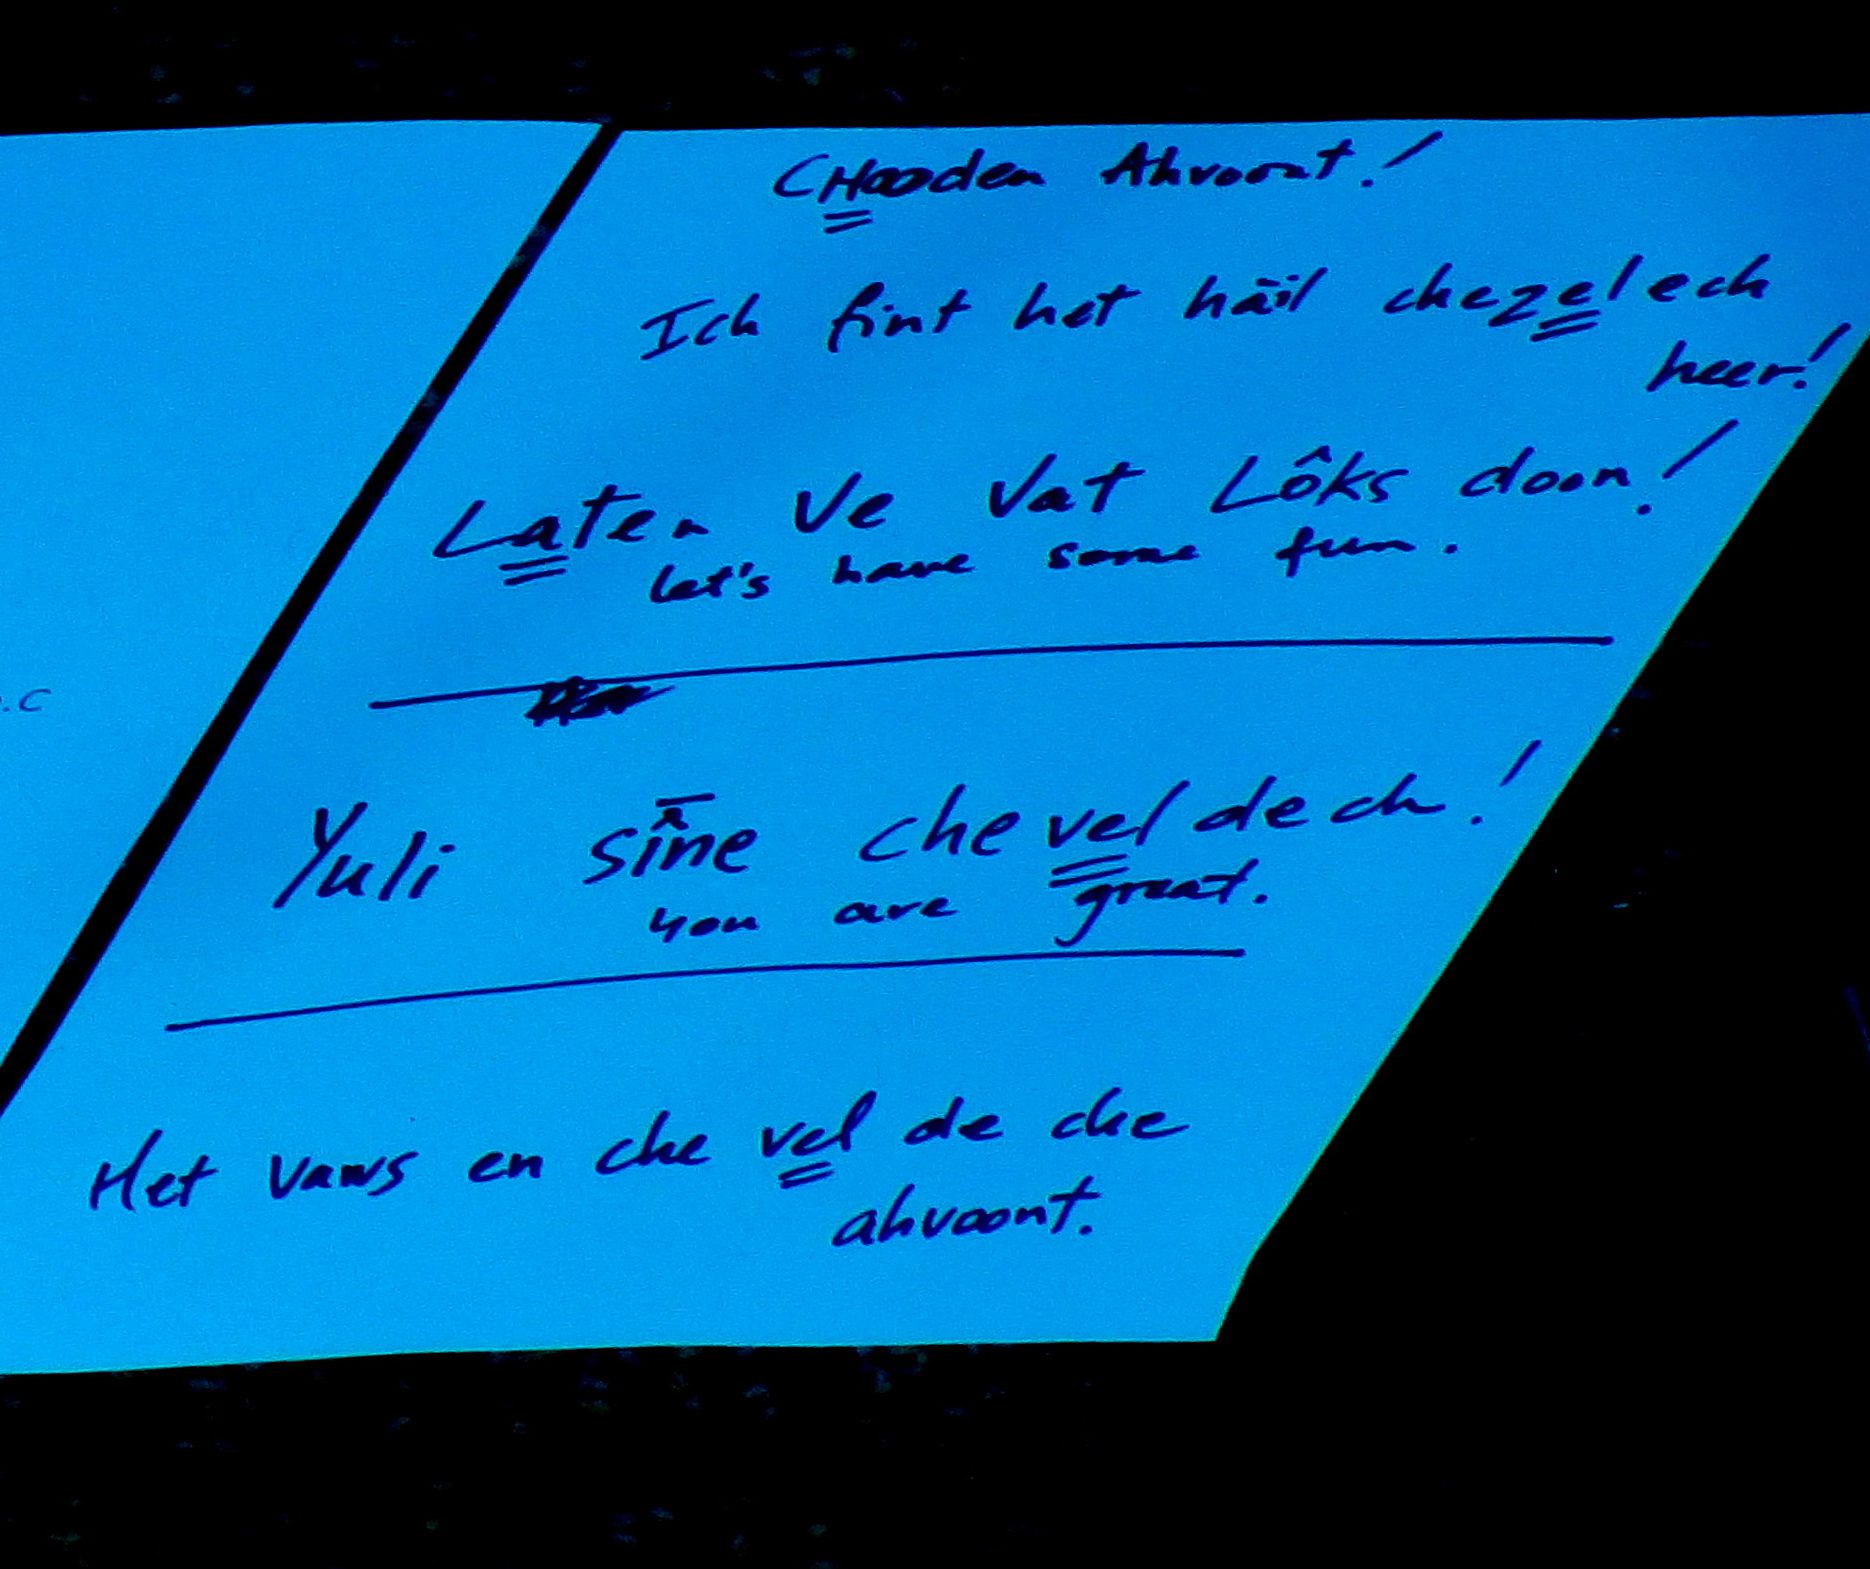 CHooden Ahvoont!
Ich fint het häil chezelech
heer!
Laten Ve Vat Lôks doon!
let's have some fun.
Yuli sîne cheveldech!
you are great.
Het vaws en che vel de che
ahvoont.
.c